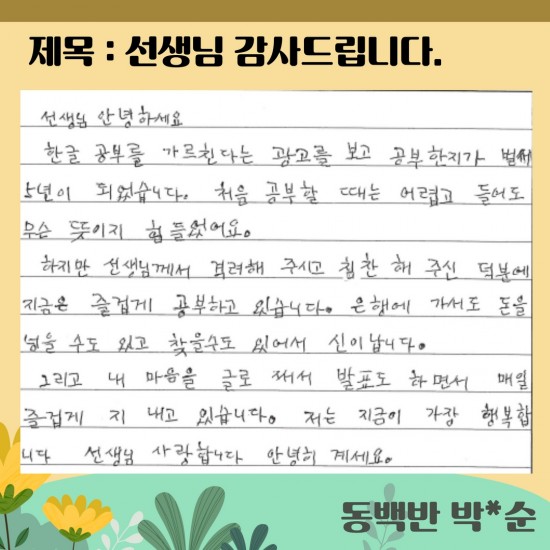 제목 : 선생님 감사드립니다.
선생님 안녕하세요
한글 공부를 가르친다는 광고를 보고 공부한지가 벌써
5년이 되었습니다. 처음 공부할 때는 어렵고 들어도
무슨 뜻이지 힘들었어요.
하지만 선생님께서 격려해 주시고 칭찬 해 주신 덕분에
지금은 즐겁게 공부하고 있습니다. 은행에 가서도 돈을
넣을 수도 있고 찾을수도 있어서 신이납니다.
그리고 내 마음을 글로 써서 발표도 하면서 매일
즐겁게 지 내고 있습니다. 저는 지금이 가장 행복합
니다 선생님 사랑합니다 안녕히 계세요.
동백반 박*순